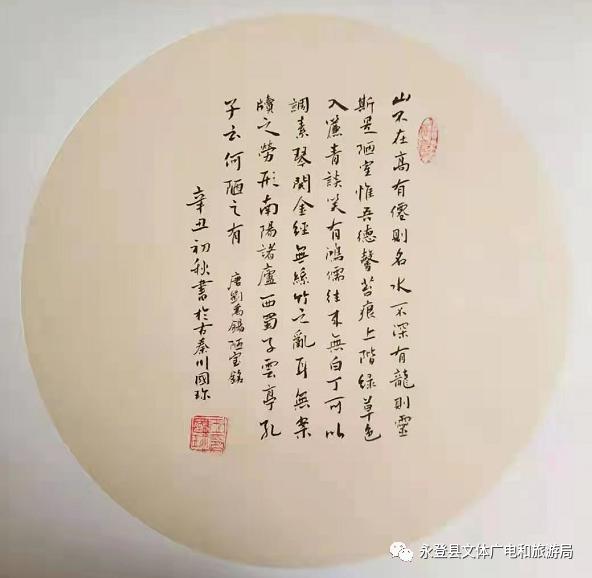 山不在高有僊則名水不深有龍則靈
斯是陋室惟吾德馨苔痕上階緑草色
入簾青談笑有鴻儒往来無白丁可以
調素琴閲金經無絲竹之亂耳無案
牘之勞形南陽諸廬西蜀子雲亭孔
子云何陋之有
唐劉禹錫陋室銘
辛丑初秋書於古秦川國珍
永登县文体广电和旅游局